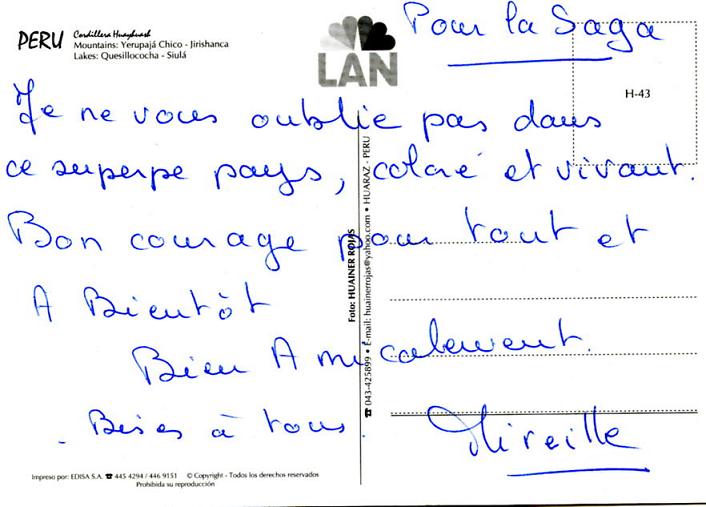 Pour la Saga
PERU Cordillera Huayhuash
Mountains: Yerupajá Chico - Jirishanca
Lakes: Quesillococha - Siulá
LAN
H-43
Je ne vous oublie pas dans
ce superpe pays, coloré et vivant.
Bon courage pour tout et
A Bientôt
Bien Amicalement.
Bises à tous.
Mireille
Foto: HUAINER ROJAS
☎ 043-425899 • E-mail: huainerrojas@yahoo.com • HUARAZ - PERU
Impreso por: EDISA S.A. ☎ 445 4294 / 446 9151 © Copyright - Todos los derechos reservados
Prohibida su reproducción